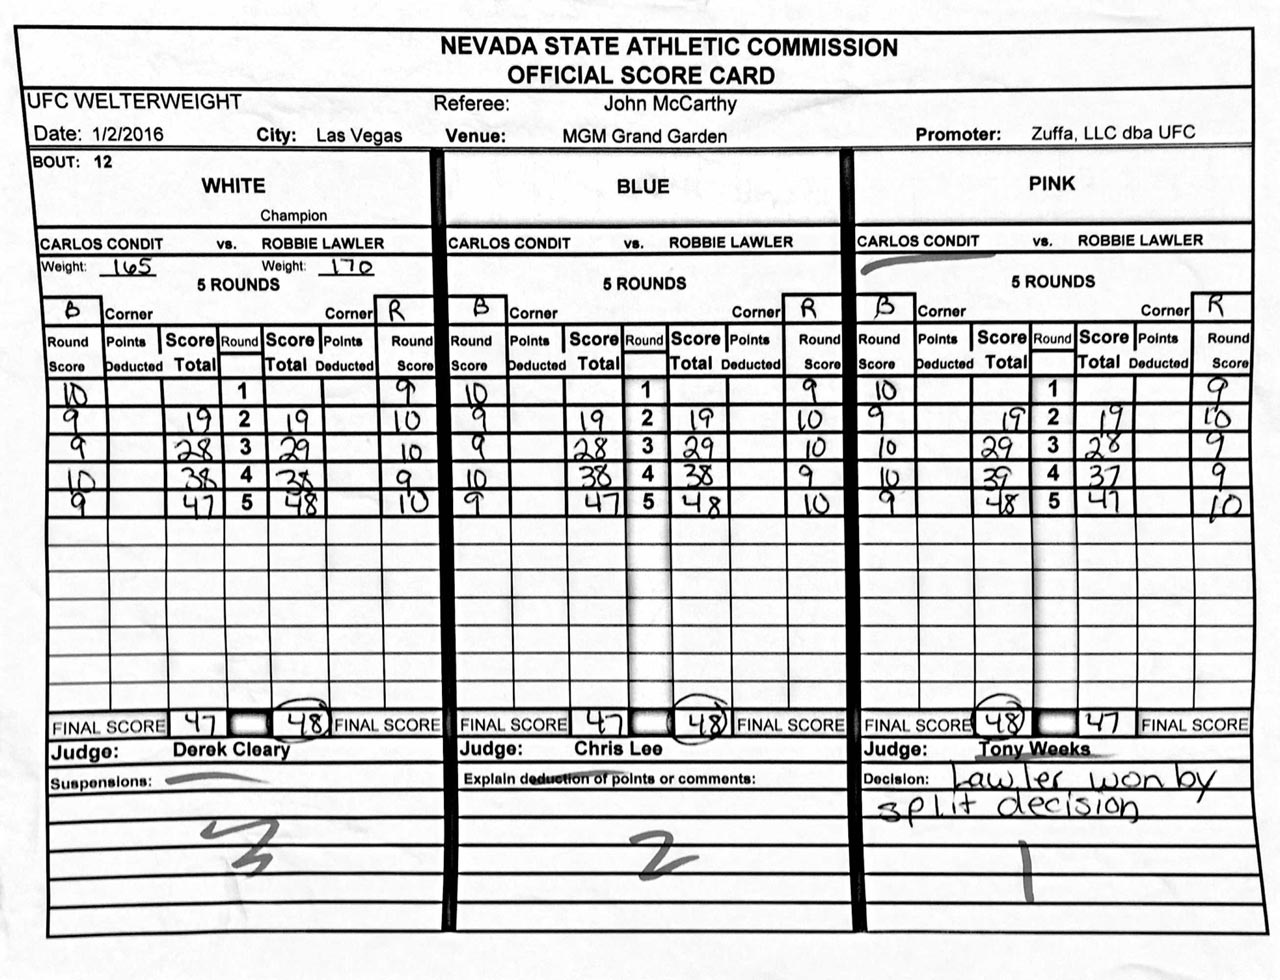 NEVADA STATE ATHLETIC COMMISSION
OFFICIAL SCORE CARD
UFC WELTERWEIGHT Referee: John McCarthy
Date: 1/2/2016 City: Las Vegas Venue: MGM Grand Garden Promoter: Zuffa, LLC dba UFC
BOUT: 12
WHITE BLUE PINK
Champion
CARLOS CONDIT vs. ROBBIE LAWLER CARLOS CONDIT vs. ROBBIE LAWLER CARLOS CONDIT vs. ROBBIE LAWLER
Weight: 165 Weight: 170
5 ROUNDS 5 ROUNDS 5 ROUNDS
B Corner Corner R B Corner Corner R B Corner Corner R
Round Points Score Round Score Points Round Round Points Score Round Score Points Round Round Points Score Round Score Points Round
Score Deducted Total Total Deducted Score Score Deducted Total Total Deducted Score Score Deducted Total Total Deducted Score
10 1 9 10 1 9 10 1 9
9 19 2 19 10 9 19 2 19 10 9 19 2 19 10
9 28 3 29 10 9 28 3 29 10 10 29 3 28 9
10 38 4 38 9 10 38 4 38 9 10 39 4 37 9
9 47 5 48 10 9 47 5 48 10 9 48 5 47 10
FINAL SCORE 47 48 FINAL SCORE FINAL SCORE 47 48 FINAL SCORE FINAL SCORE 48 47 FINAL SCORE
Judge: Derek Cleary Judge: Chris Lee Judge: Tony Weeks
Suspensions: Explain deduction of points or comments: Decision: Lawler won by
split decision
3 2 1